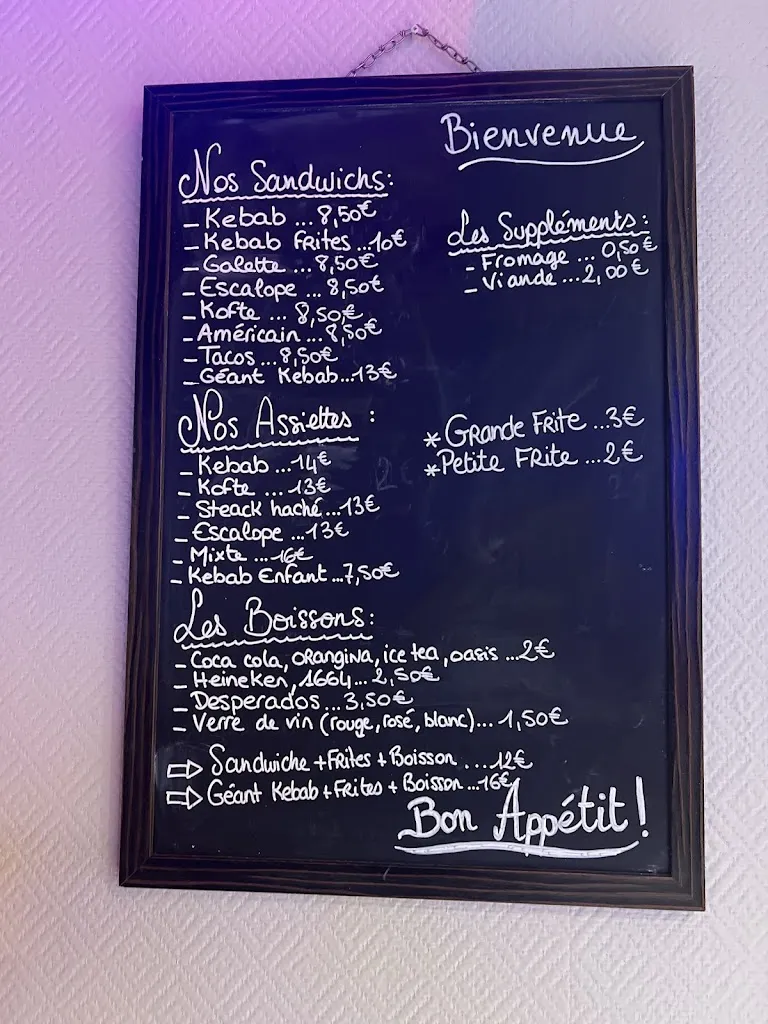 Bienvenue
Nos Sandwichs:
- Kebab ... 8,50€
- Kebab Frites ...10€
- Galette ... 8,50€
- Escalope ... 8,50€
- Kofte ... 8,50€
- Américain ... 8,50€
- Tacos ... 8,50€
- Géant Kebab...13€
Les Suppléments:
- Fromage ... 0,50€
- Viande ...2,00€
Nos Assiettes :
- Kebab ...14€
- Kofte ... 13€
- Steack haché...13€
- Escalope ...13€
- Mixte ...16€
- Kebab Enfant...7,50€
* Grande Frite ...3€
* Petite Frite ...2€
Les Boissons:
- Coca cola, Orangina, ice tea, oasis ...2€
- Heineken, 1664... 2,50€
- Desperados...3,50€
- Verre de vin (rouge, rosé, blanc)... 1,50€
⇨ Sandwiche + Frites + Boisson ...12€
⇨ Géant Kebab + Frites + Boisson ...16€
Bon Appétit !